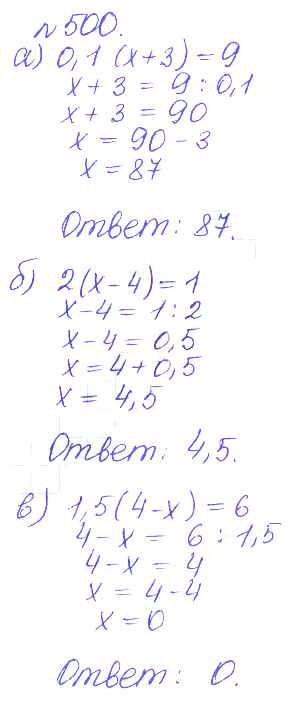 №500.
а) 0,1 (x+3) = 9
x + 3 = 9 : 0,1
x + 3 = 90
x = 90 - 3
x = 87
Ответ: 87.
б) 2(x-4) = 1
x-4 = 1 : 2
x - 4 = 0,5
x = 4 + 0,5
x = 4,5
Ответ: 4,5.
в) 1,5(4-x) = 6
4-x = 6 : 1,5
4-x = 4
x = 4-4
x = 0
Ответ: 0.